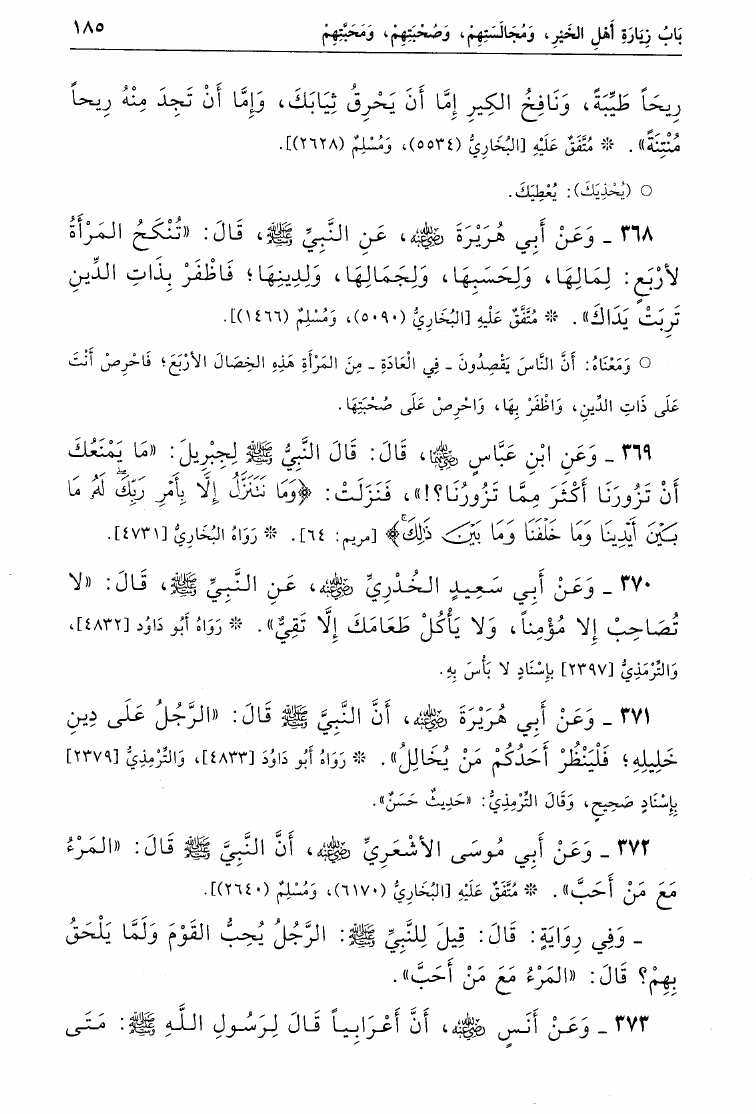 بَابُ زِيَارَةِ أَهْلِ الخَيْرِ، وَمُجَالَسَتِهِمْ، وَصُحْبَتِهِمْ، وَمَحَبَّتِهِمْ ١٨٥
رِيحَاً طَيِّبَةً، وَنَافِخُ الكِيرِ إِمَّا أَنْ يَحْرِقَ ثِيَابَكَ، وَإِمَّا أَنْ تَجِدَ مِنْهُ رِيحاً
مُنْتِنَةً». * مُتَّفَقٌ عَلَيْهِ [البُخَارِيُّ (٥٥٣٤)، وَمُسْلِمٌ (٢٦٢٨)].
○ (يُحْذِيكَ): يُعْطِيكَ.
٣٦٨ ـ وَعَنْ أَبِي هُرَيْرَةَ رضي الله عنه، عَنِ النَّبِيِّ ﷺ، قَالَ: «تُنْكَحُ المَرْأَةُ
لأَرْبَعٍ: لِمَالِهَا، وَلِحَسَبِهَا، وَلِجَمَالِهَا، وَلِدِينِهَا؛ فَاظْفَرْ بِذَاتِ الدِّينِ
تَرِبَتْ يَدَاكَ». * مُتَّفَقٌ عَلَيْهِ [البُخَارِيُّ (٥٠٩٠)، وَمُسْلِمٌ (١٤٦٦)].
○ وَمَعْنَاهُ: أَنَّ النَّاسَ يَقْصِدُونَ ـ فِي الْعَادَةِ ـ مِنَ المَرْأَةِ هَذِهِ الخِصَالَ الأَرْبَعَ؛ فَاحْرِصْ أَنْتَ
عَلَى ذَاتِ الدِّينِ، وَاظْفَرْ بِهَا، وَاحْرِصْ عَلَى صُحْبَتِهَا.
٣٦٩ ـ وَعَنِ ابْنِ عَبَّاسٍ رضي الله عنهما، قَالَ: قَالَ النَّبِيُّ ﷺ لِجِبْرِيلَ: «مَا يَمْنَعُكَ
أَنْ تَزُورَنَا أَكْثَرَ مِمَّا تَزُورُنَا؟!»، فَنَزَلَتْ: ﴿وَمَا نَتَنَزَّلُ إِلَّا بِأَمْرِ رَبِّكَۖ لَهُۥ مَا
بَيْنَ أَيْدِينَا وَمَا خَلْفَنَا وَمَا بَيْنَ ذَٰلِكَۚ﴾ [مريم: ٦٤]. * رَوَاهُ البُخَارِيُّ [٤٧٣١].
٣٧٠ ـ وَعَنْ أَبِي سَعِيدٍ الخُدْرِيِّ رضي الله عنه، عَنِ النَّبِيِّ ﷺ، قَالَ: «لا
تُصَاحِبْ إِلا مُؤْمِناً، وَلا يَأْكُلْ طَعَامَكَ إِلَّا تَقِيٌّ». * رَوَاهُ أَبُو دَاوُد [٤٨٣٢]،
وَالتِّرْمِذِيُّ [٢٣٩٧] بِإِسْنَادٍ لا بَأْسَ بِهِ.
٣٧١ ـ وَعَنْ أَبِي هُرَيْرَةَ رضي الله عنه، أَنَّ النَّبِيَّ ﷺ قَالَ: «الرَّجُلُ عَلَى دِينِ
خَلِيلِهِ؛ فَلْيَنْظُرْ أَحَدُكُمْ مَنْ يُخَالِلُ». * رَوَاهُ أَبُو دَاوُدَ [٤٨٣٣]، وَالتِّرْمِذِيُّ [٢٣٧٩]
بِإِسْنَادٍ صَحِيحٍ، وَقَالَ التِّرْمِذِيُّ: «حَدِيثٌ حَسَنٌ».
٣٧٢ ـ وَعَنْ أَبِي مُوسَى الأَشْعَرِيِّ رضي الله عنه، أَنَّ النَّبِيَّ ﷺ قَالَ: «المَرْءُ
مَعَ مَنْ أَحَبَّ». * مُتَّفَقٌ عَلَيْهِ [البُخَارِيُّ (٦١٧٠)، وَمُسْلِمٌ (٢٦٤٠)].
ـ وَفِي رِوَايَةٍ: قَالَ: قِيلَ لِلنَّبِيِّ ﷺ: الرَّجُلُ يُحِبُّ القَوْمَ وَلَمَّا يَلْحَقْ
بِهِمْ؟ قَالَ: «المَرْءُ مَعَ مَنْ أَحَبَّ».
٣٧٣ ـ وَعَنْ أَنَسٍ رضي الله عنه، أَنَّ أَعْرَابِياً قَالَ لِرَسُولِ اللَّهِ ﷺ: مَتَى